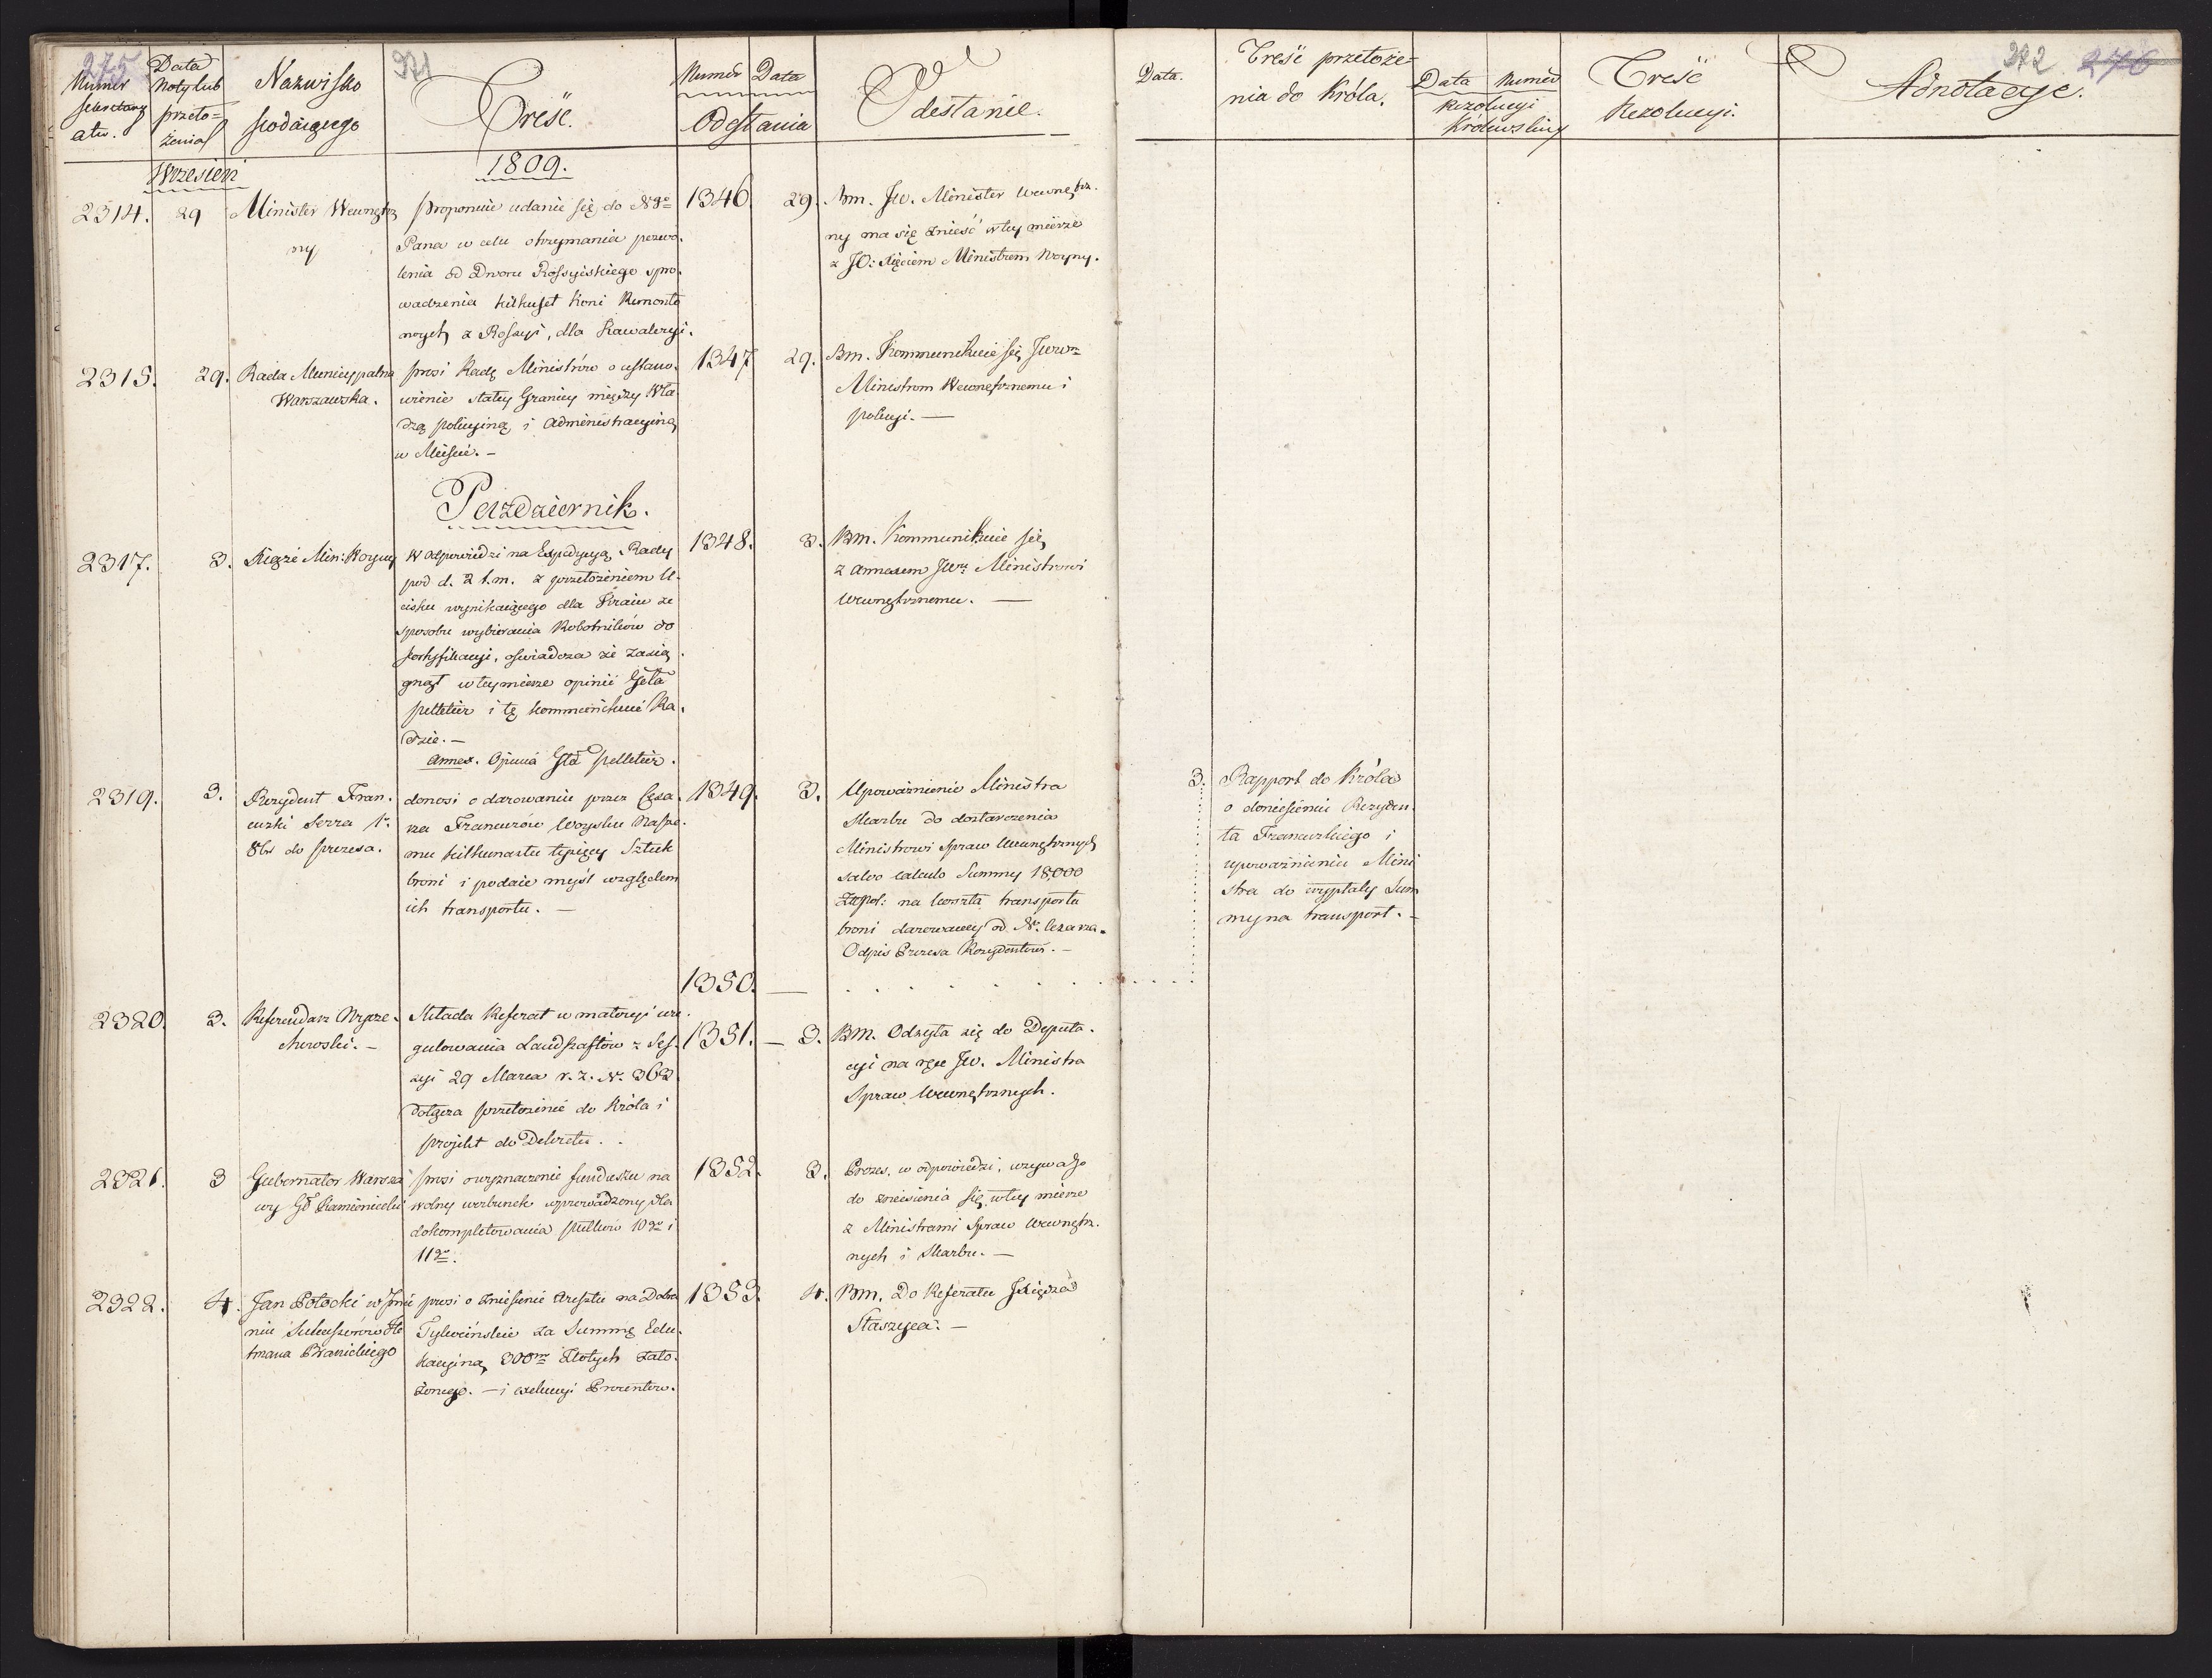 275
271
Numer
Sekretary
atu.
Data
Noty lub
przeło=
żenia
Nazwisko
podaiącego
Treść.
Numer Data
Odesłania
Odesłanie.
Wrzesień
1809.
2314. 29 Minister Wewnętrz
ny
proponuie udanie się do N̄go
Pana w celu otrzymania pozwo.
lenia od Dworu Rossyiskiego spro.
wadzenia kilkuset koni Remonto
nych z Rossyi, dla Kawaleryi.
1346. 29. Bm. JW. Minister Wewnętrz.
ny ma się znieść w tey mierze
z JO: Xięciem Ministrem Woyny.
2315. 29. Rada Municypalna
Warszawska.
prosi Radę Ministrów o ustano.
wienie stałey Granicy między Wła
dzą policyiną i administracyiną
w Mieście. –
1347 29. Bm. Kommunikuie się JWW
Ministrom Wewnętrznemu i
policyi. —
Pazdziernik.
2317. 3. Xiąże Min: Woyny
W odpowiedzi na Expedycyą Rady
pod d. 2 t.m. z przełożeniem U.
cisku wynikaiącego dla Kraiu ze
sposobu wybierania Robotników do
fortyfikacyi, oswiadcza że zasią
gnął w tey mierze opinii Gełā
Pelletier i tę kommunikuie Ra.
dzie. –
Annex. Opinia Głā Pelletier.
1348. 3. Bm. Kommunikuie się
z annexem JWu Ministrowi
Wewnętrznemu. —
2319. 3. Rezydent Fran.
cuzki Serra 1.
8br do prezesa.
donosi o darowaniu przez Cesa.
rza Francuzów Woysku Nasze.
mu kilkunastu tysięcy Sztuk
broni i podaie myśl względem
ich transportu. —
1349. 3. Upoważnienie Ministra
Skarbu do dostarczenia
Ministrowi Spraw Wewnętrznych
salvo calculo Summy 18,000
Złpol: na koszta transportu
broni darowaney od N. Cezarza.
Odpis Prezesa Rezydentowi. –
1350. —
2320. 3. Referendarz Wyże.
chowski. –
Składa Referat w materyi ure.
gulowania Landszaftów z Ses.
syi 29 Marca r. z. N. 363.
Dołącza przełożenie do Króla i
projekt do Dekretu. .
1351. — 3. Bm. Odsyła się do Deputa.
cyi na ręce JW. Ministra
Spraw Wewnętrznych.
2321. 3 Gubernator Warsza
wy Gł Kamieniecki
prosi o wyznaczenie funduszu na
wolny werbunek wprowadzony dla
dokompletowania pułków 10go i
11go.
1352. 3. Prezes, w odpowiedzi, wzywa go
do zniesienia się w tey mierze
z Ministrami Spraw Wewnętrz.
nych i Skarbu. —
2322. 4. Jan Potocki w Jmie
niu Sukcessorów He
tmana Branickiego
prosi o zniesienie Aresztu na Dobra
Tykocińskie za Summę Edu.
kacyiną 300m Złotych zało.
żonego. — i exekucyi Procentów.
1353. 4. Bm. Do Referatu Xiędza
Staszyca. —
272 276
Data.
Treść przełoże=
nia do Króla.
Data Numer
Rezolucyi
Królewskiey
Treść
Rezolucyi.
Adnotacye.
3. Rapport do Króla
o doniesieniu Rezyden.
ta Francuzkiego i
upoważnieniu Mini
stra do wypłaty Sum
my na transport. –